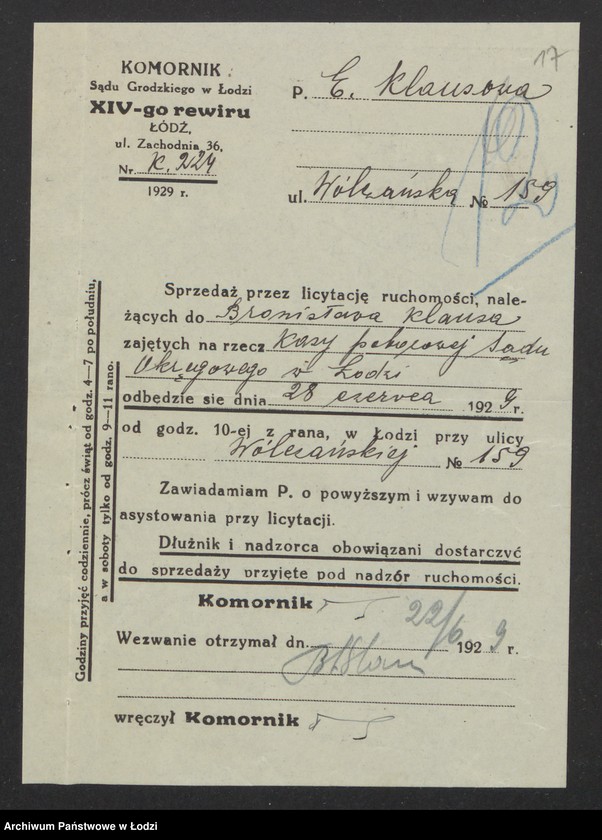 17
KOMORNIK
Sądu Grodzkiego w Łodzi
XIV-go rewiru
ŁÓDŹ,
ul. Zachodnia 36.
Nr. K. 224
1929 r.
P. E. Klausova
ul. Wólczańska № 159
Sprzedaż przez licytację ruchomości, nale-
żących do Bronisława Klausa
zajętych na rzecz Kasy pobocowej Sądu
Okręgowego w Łodzi
odbędzie się dnia 28 czerwca 1929 r.
od godz. 10-ej z rana, w Łodzi przy ulicy
Wólczańskiej № 159
Zawiadamiam P. o powyższym i wzywam do
asystowania przy licytacji.
Dłużnik i nadzorca obowiązani dostarczyć
do sprzedaży przyjęte pod nadzór ruchomości.
Komornik
Wezwanie otrzymał dn. 22/6 1929 r.
wręczył Komornik
Godziny przyjęć codziennie, prócz świąt od godz. 4—7 po południu,
a w soboty tylko od godz. 9—11 rano.
Archiwum Państwowe w Łodzi